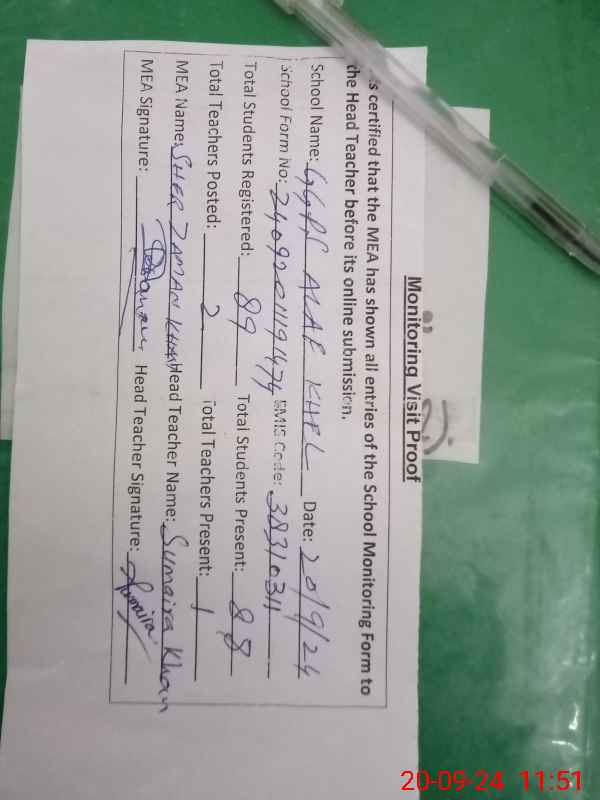 Monitoring Visit Proof
s certified that the MEA has shown all entries of the School Monitoring Form to
the Head Teacher before its online submission.
School Name: GGPS ALAF KHEL Date: 20/9/24
School Form No: 24092011191474 EMIS Code: 38310311
Total Students Registered: 89 Total Students Present: 88
Total Teachers Posted: 2 Total Teachers Present: 1
MEA Name: SHER ZAMAN KHAN Head Teacher Name: Sumaira Khan
MEA Signature: Head Teacher Signature: Sumaira
20-09-24 11:51